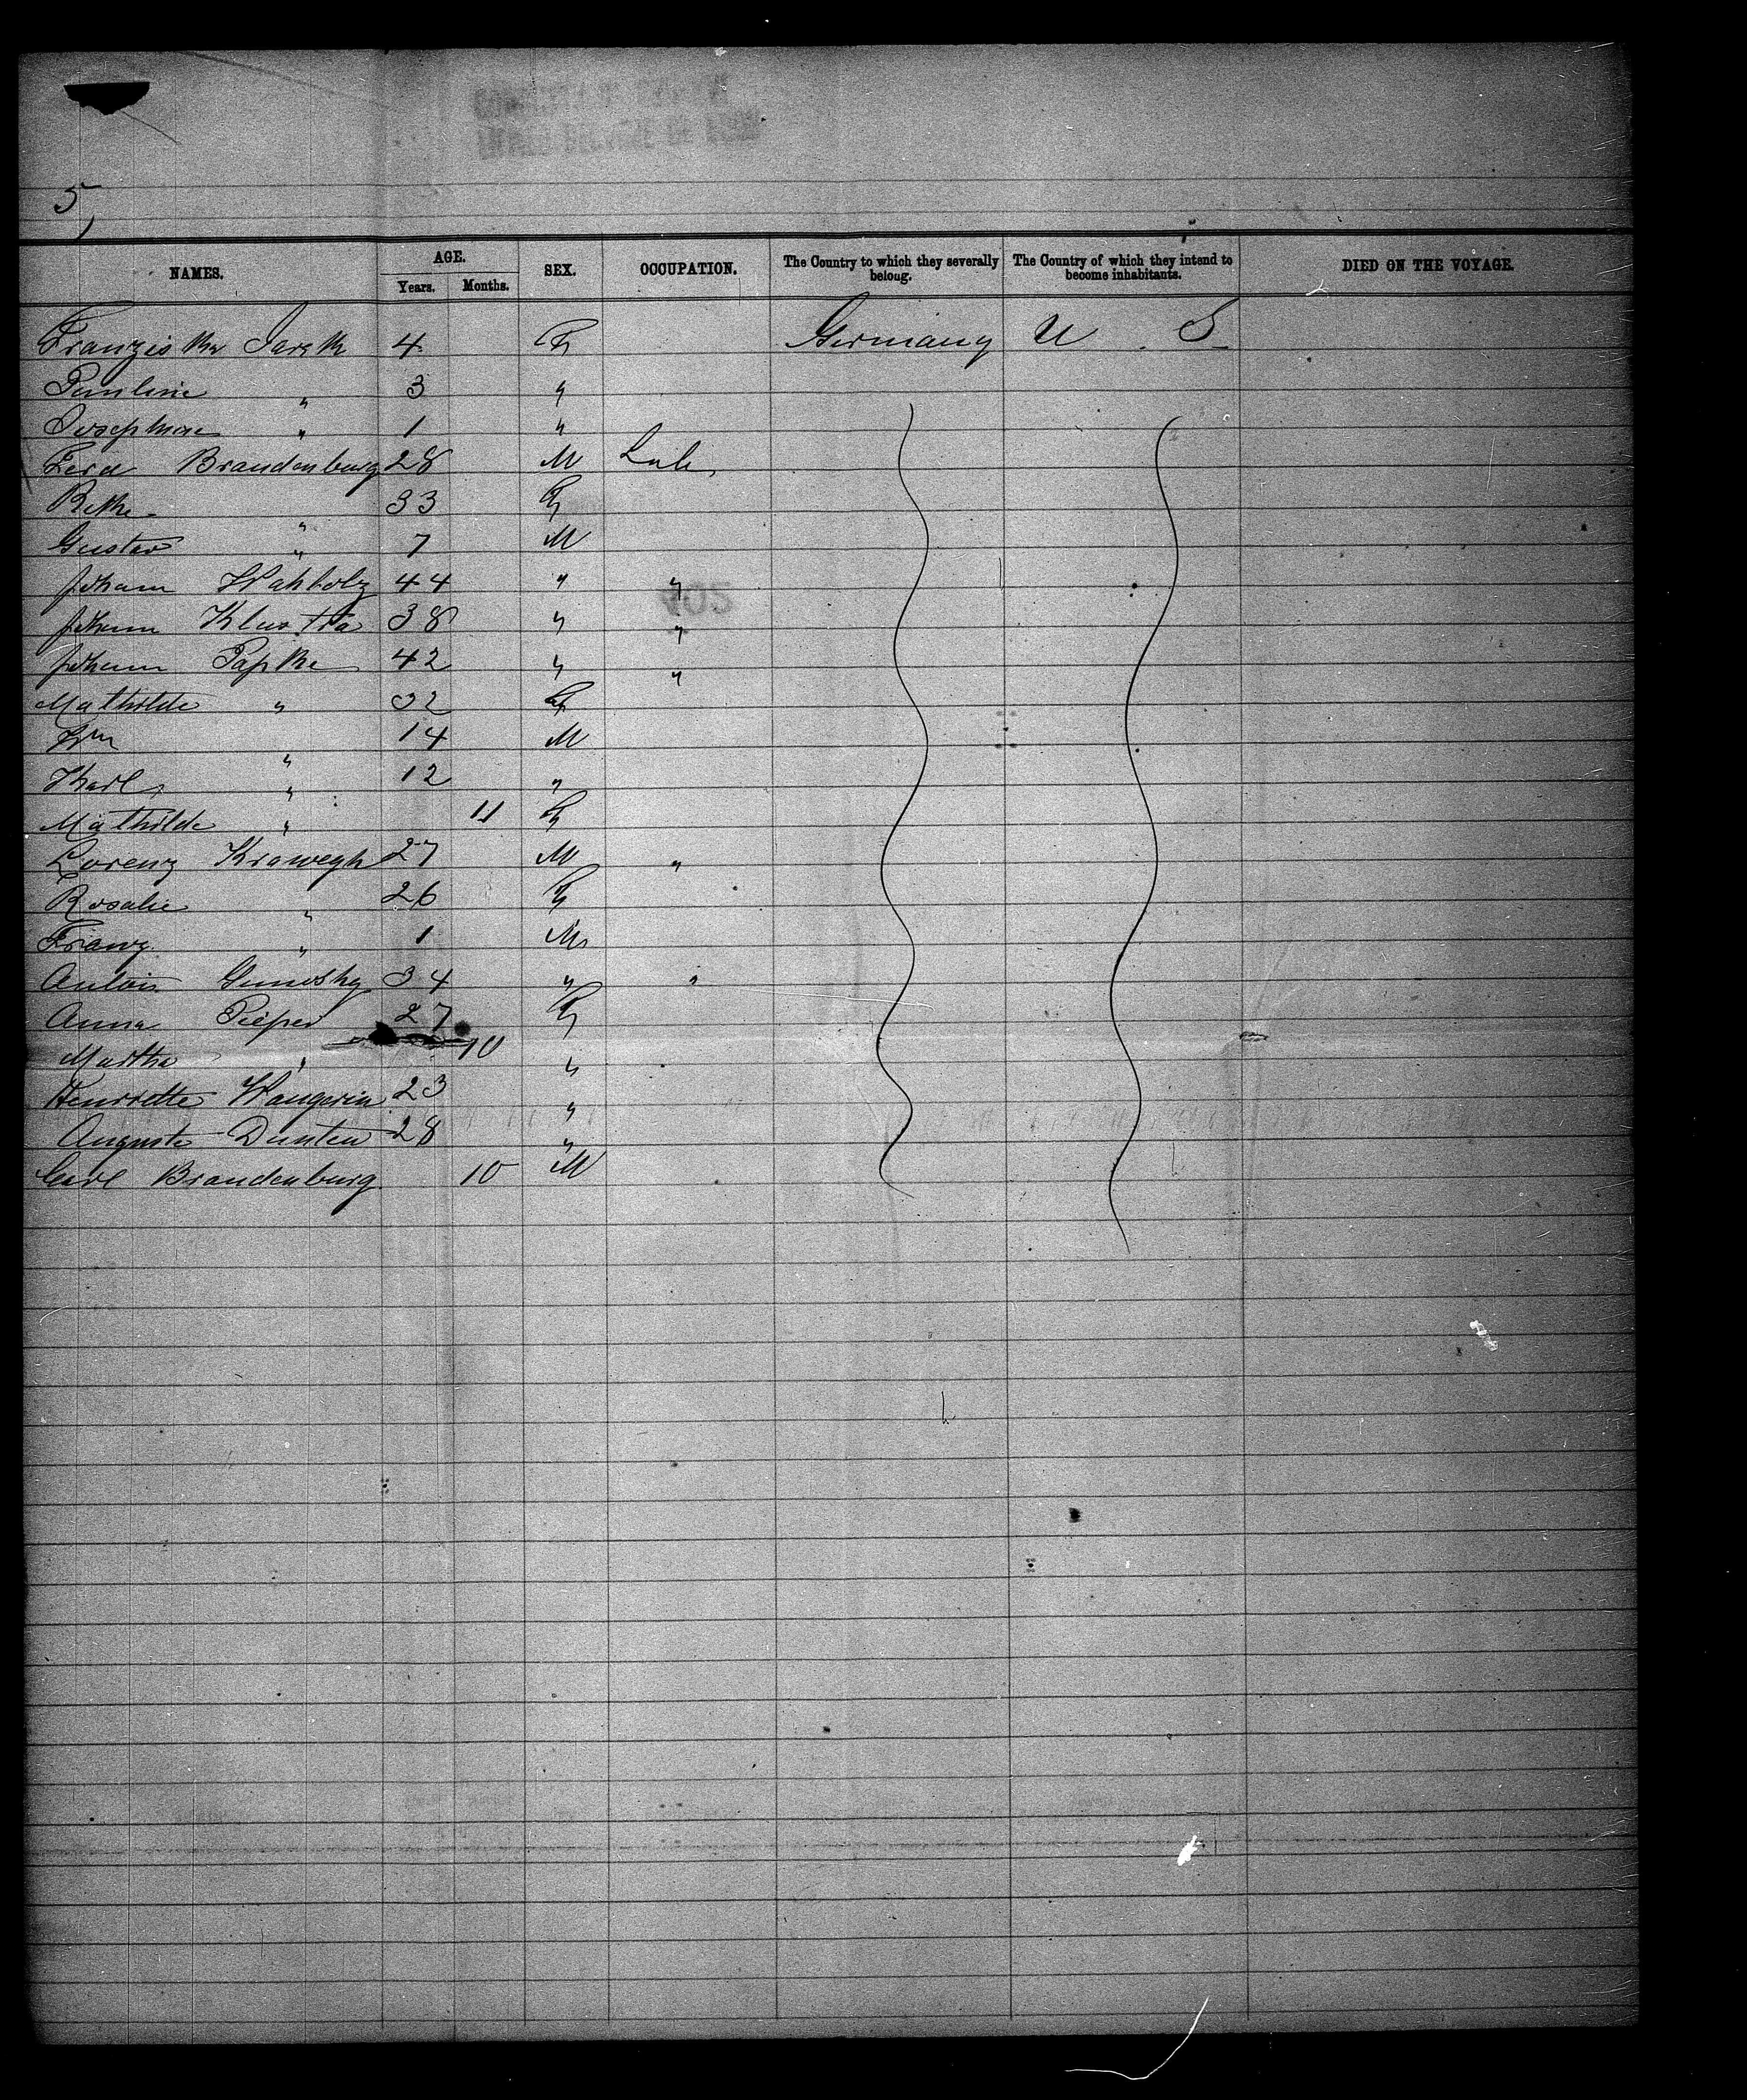 5
NAMES. AGE. SEX. OCCUPATION. The Country to which they severally belong. The Country of which they intend to become inhabitants. DIED ON THE VOYAGE.
Years. Months.
Franziska 4 F Germany U. S.
Pauline " 3 "
Josephine " 1 "
Ferd Brandenburg 28 M Lab,
33 F
Gustav " 7 M
Johann Wahholz 44 " "
Johann 38 " "
Johann Papke 42 " "
Mathilde " 32 F
Wm " 14 M
Kharl " 12 "
Mathilde " 11 F
Lorenz 27 M "
Rosalie " 26 F
Franz " 1 M
Anton 34 " "
Anna Pieper 27 F
Martha " 10 "
Henriette Wangerin 23 "
Auguste 28 "
Carl Brandenburg 10 M